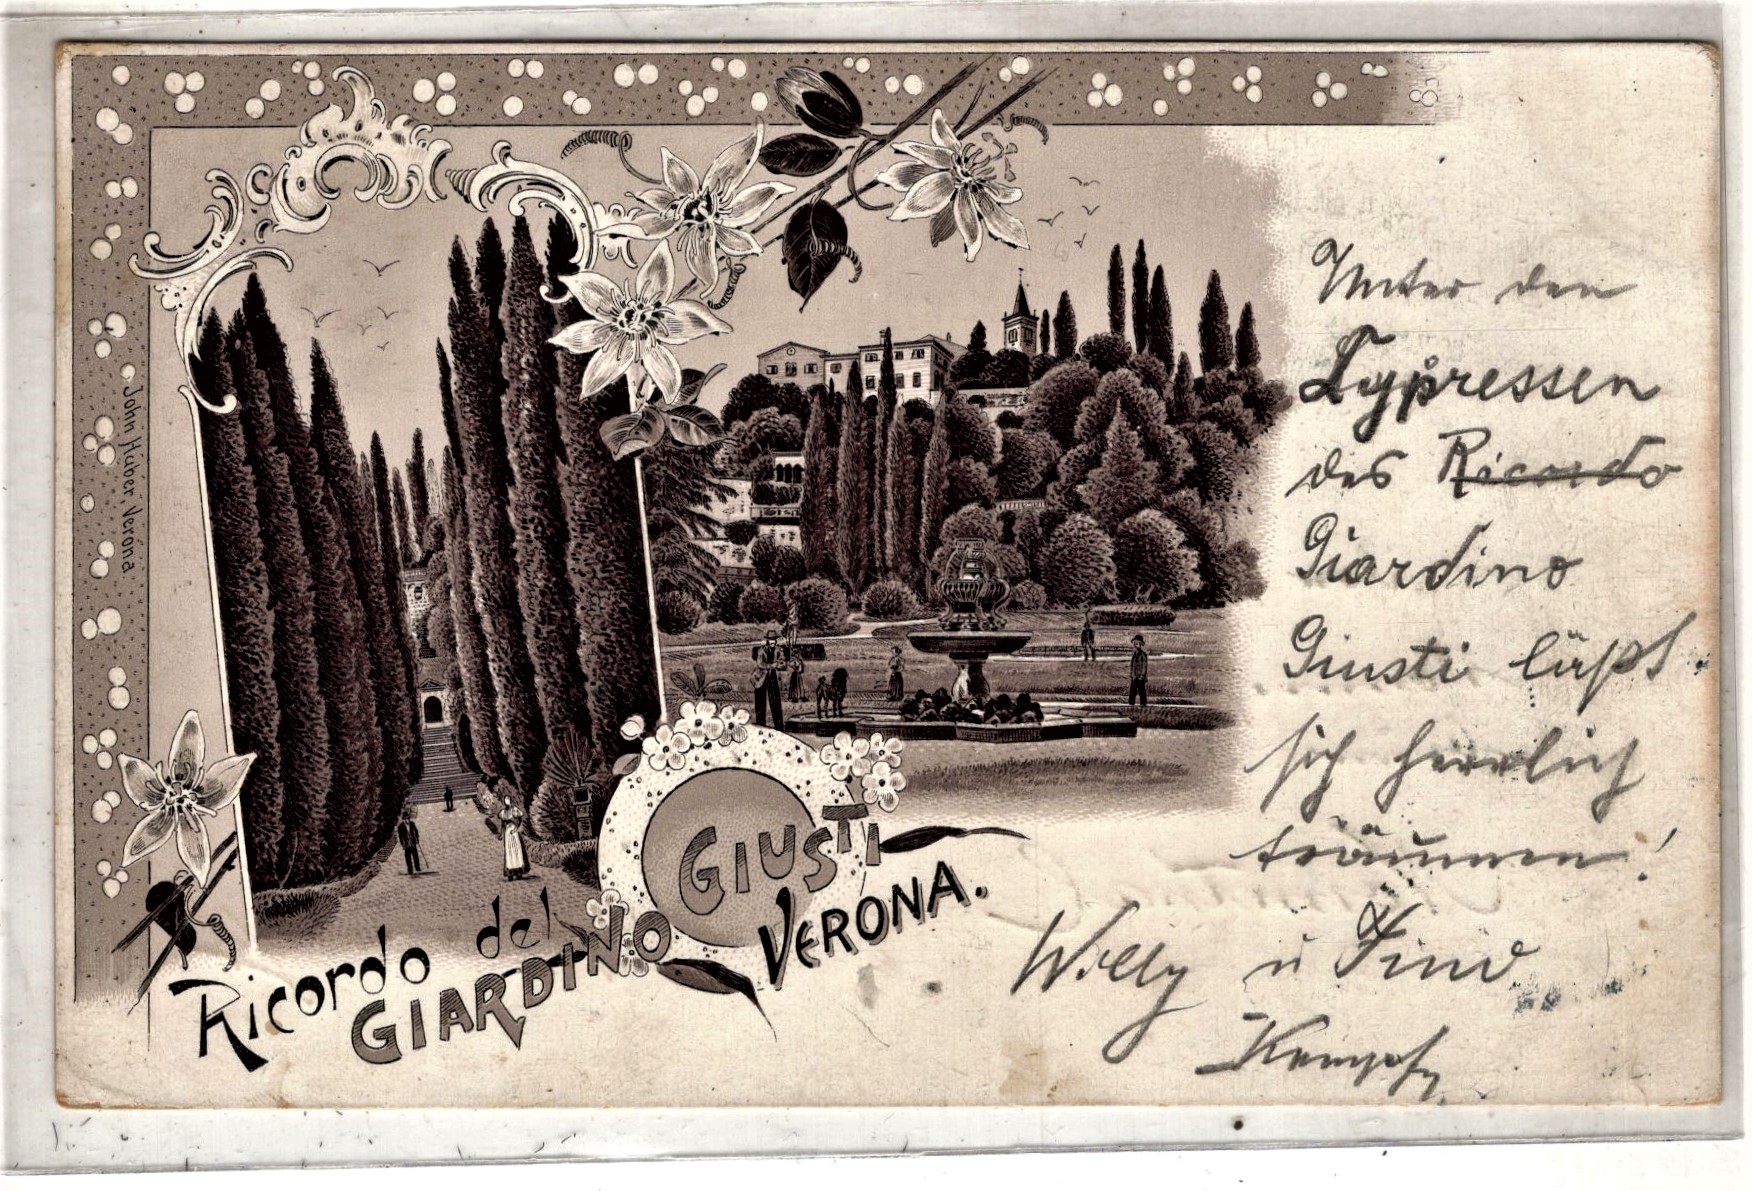 John Huber Verona
Ricordo del
GIARDINO
GIUSTI
VERONA.
Unter den
Cypressen
des Ricordo
Giardino
Giusti läßt
sich herrlich
träumen!
Willy u